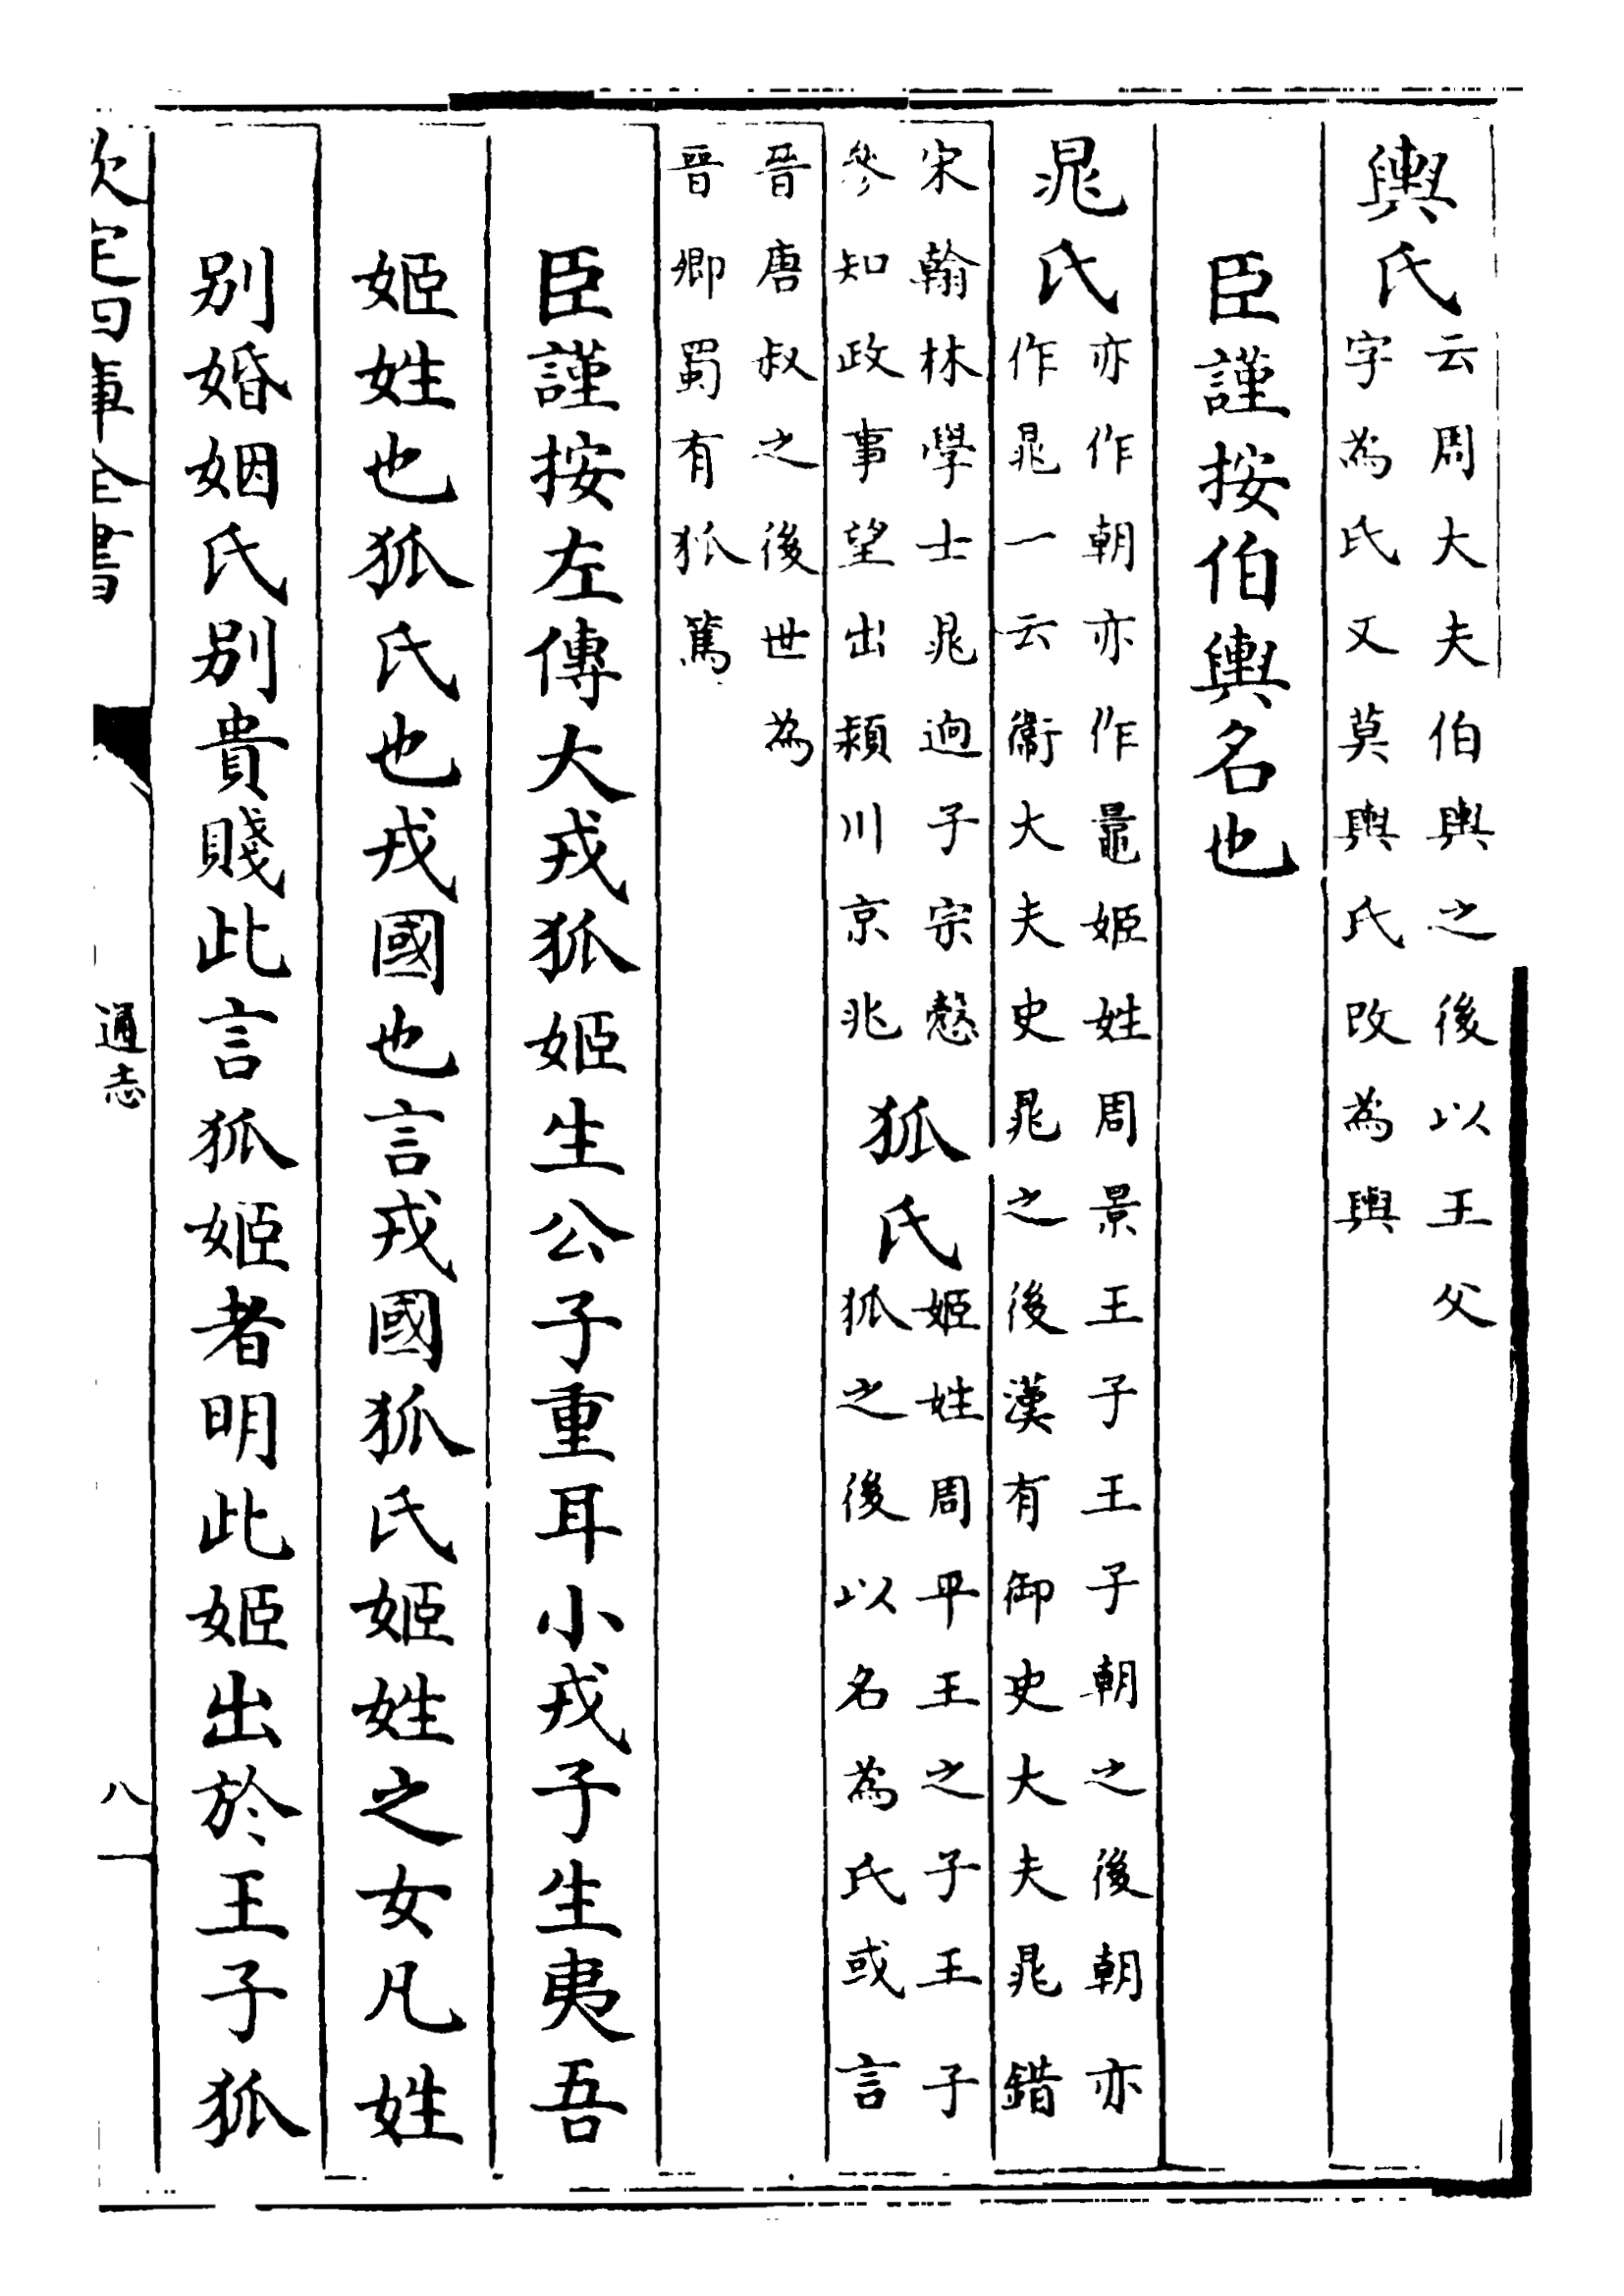 輿氏云周大夫伯輿之後以王父
字為氏又莫輿氏改為輿
臣謹按伯輿名也
晁氏亦作朝亦作鼂姬姓周景王子王子朝之後朝亦
作晁一云衞大夫史晁之後漢有御史大夫晁錯
宋翰林學士晁逈子宗慤
參知政事望出潁川京兆
狐氏姬姓周平王之子王子
狐之後以名為氏或言
晉唐叔之後世為
晉卿蜀有狐篤
臣謹按左傳大戎狐姬生公子重耳小戎子生夷吾
姬姓也狐氏也戎國也言戎國狐氏姬姓之女凡姓
别婚姻氏别貴賤此言狐姬者明此姬出於王子狐
欽定四庫全書
通志
八一